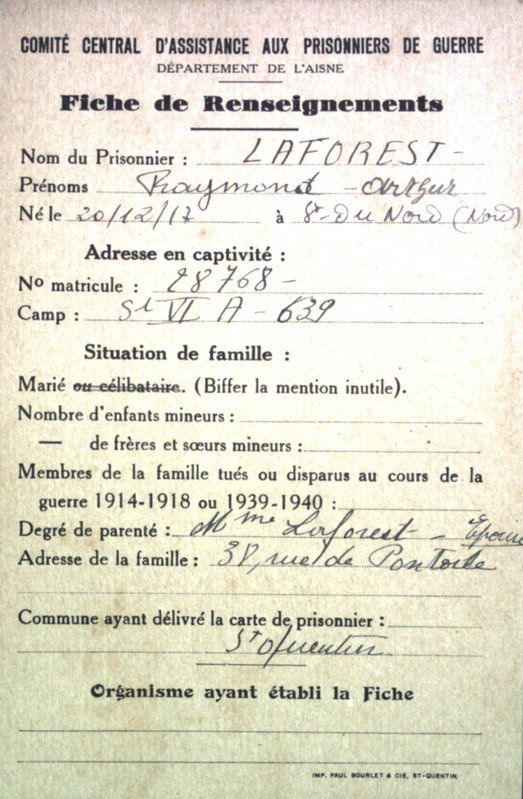 COMITÉ CENTRAL D'ASSISTANCE AUX PRISONNIERS DE GUERRE
DÉPARTEMENT DE L'AISNE
Fiche de Renseignements
Nom du Prisonnier : LAFOREST -
Prénoms Raymond - Arthur
Né le 20/12/17 à St- Du Nord (Nord)
Adresse en captivité :
No matricule : 28768 -
Camp : St VI A - 639
Situation de famille :
Marié ou célibataire. (Biffer la mention inutile).
Nombre d'enfants mineurs :
— de frères et sœurs mineurs :
Membres de la famille tués ou disparus au cours de la
guerre 1914-1918 ou 1939-1940 :
Degré de parenté : Mme Laforest - Epouse
Adresse de la famille : 38, rue de Pontoile
Commune ayant délivré la carte de prisonnier :
St Quentin
Organisme ayant établi la Fiche
IMP. PAUL BOURLET & CIE, ST-QUENTIN